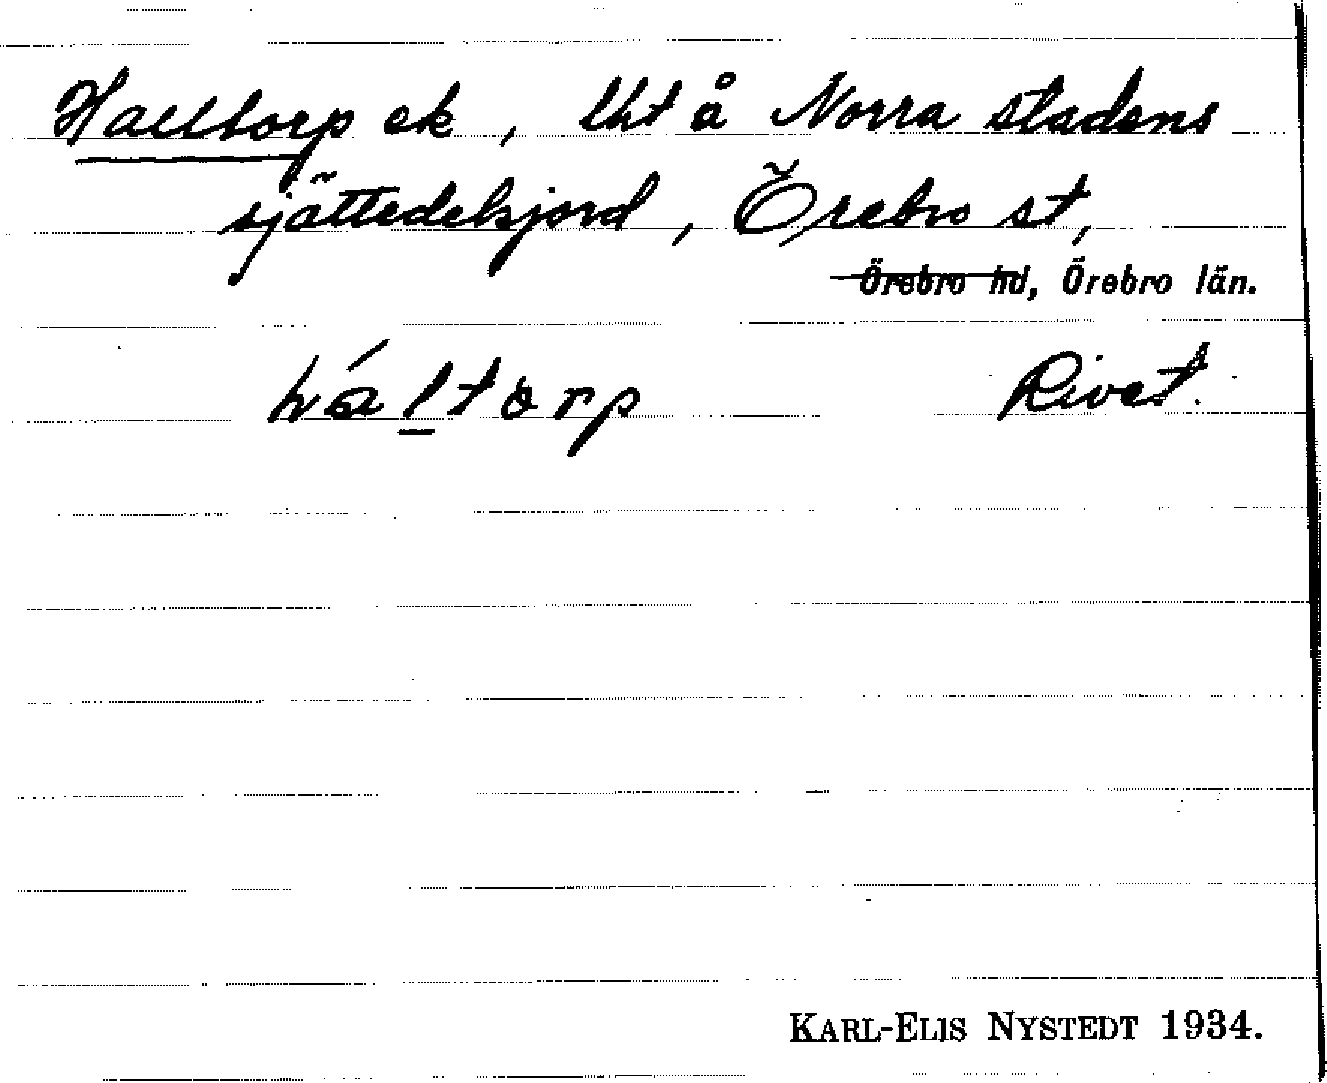 Halltorp ek, lht å Norra stadens
sjättedelsjord, Örebro st,
Örebro hd, Örebro län.
há l t o r p Rivet.
KARL-ELIS NYSTEDT 1934.